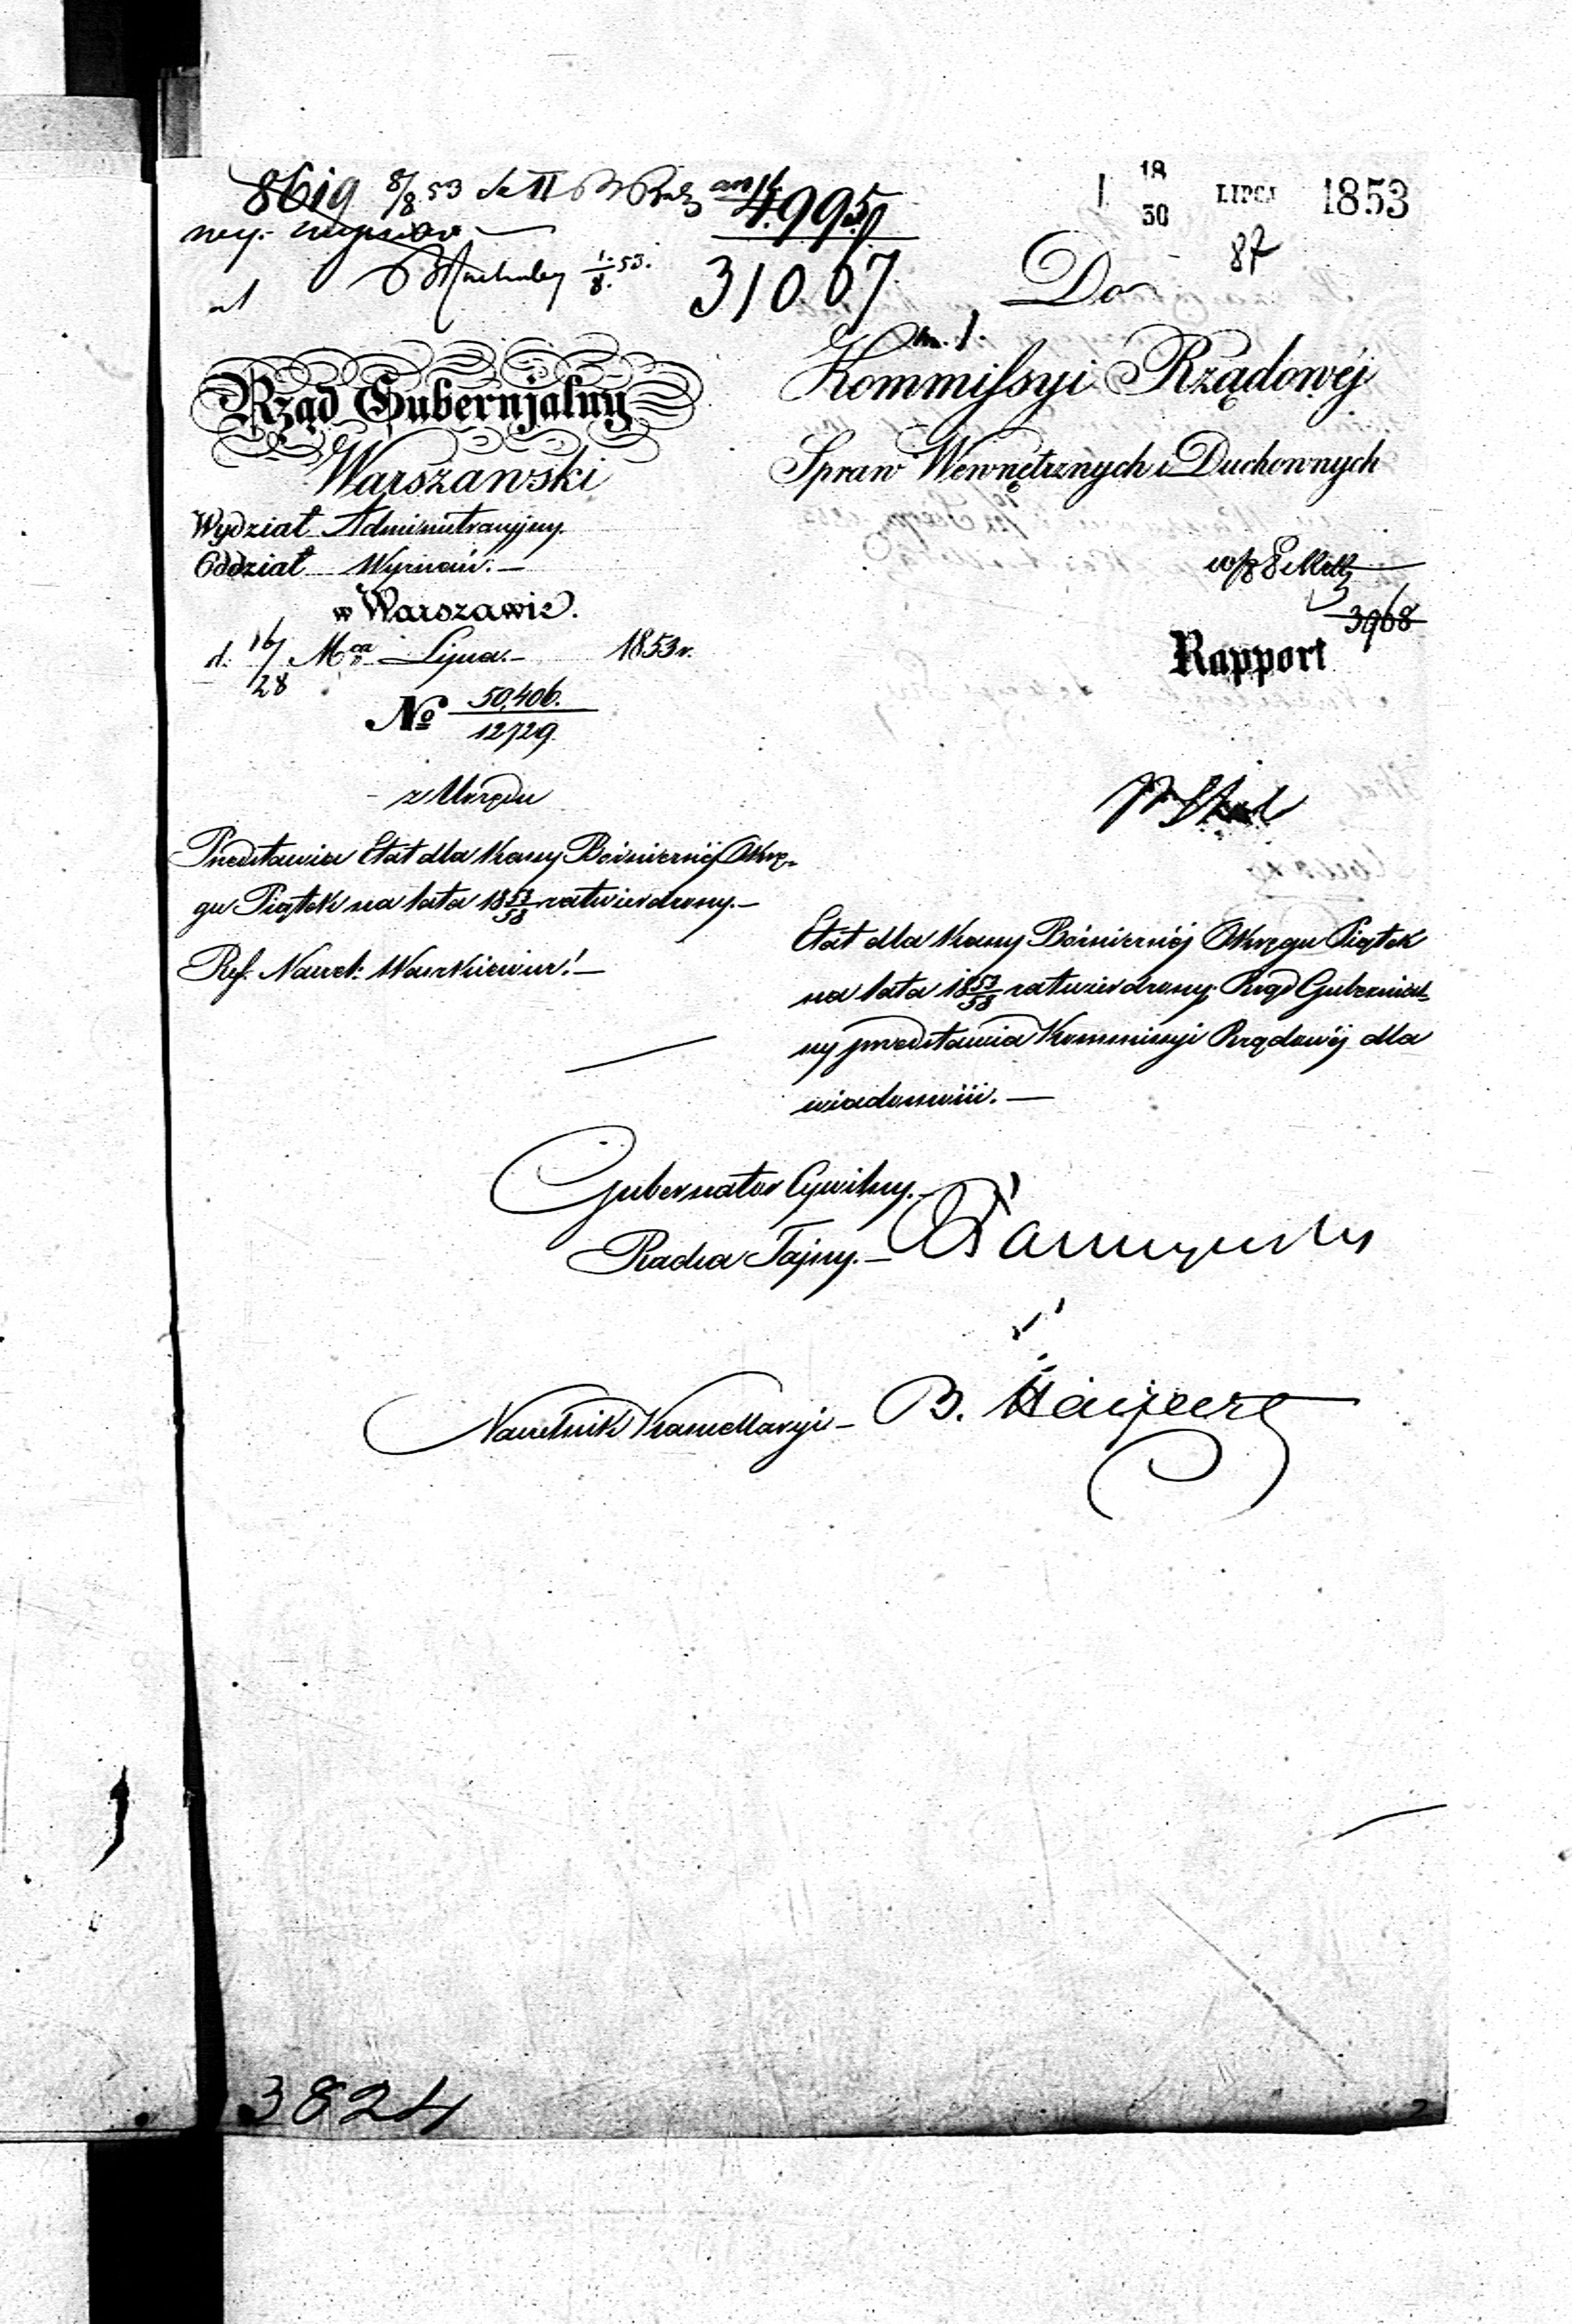 8619 8/8 53
49951
18/30 LIPCA 1853
87
1/8. 53.
31067
Do
Kommissyi Rządowéj
Spraw Wewnętrznych i Duchownych
Rząd Gubernjalny
Warszawski
Wydział Administracyjny.
Oddział Wyznań.—
w Warszawie.
d. 16/28 Mca Lipca.— 1853 r.
№ 50,406./12729.
3968
Rapport
z Urzędu
Przedstawia Etat dla Kassy Bóżniczéj Okrę-
gu Piątek na lata 18 53/58 zatwierdzony.—
Ref. Naczel:
Etat dla Kassy Bóżniczéj Okręgu Piątek
na lata 18 53/58 zatwierdzony. Rząd Gubernial-
ny przedstawia Kommissyi Rządowéj dla
wiadomości.—
Gubernator Cywilny.—
Radca Tajny.—
Naczelnik Kancellaryi— B.
3824